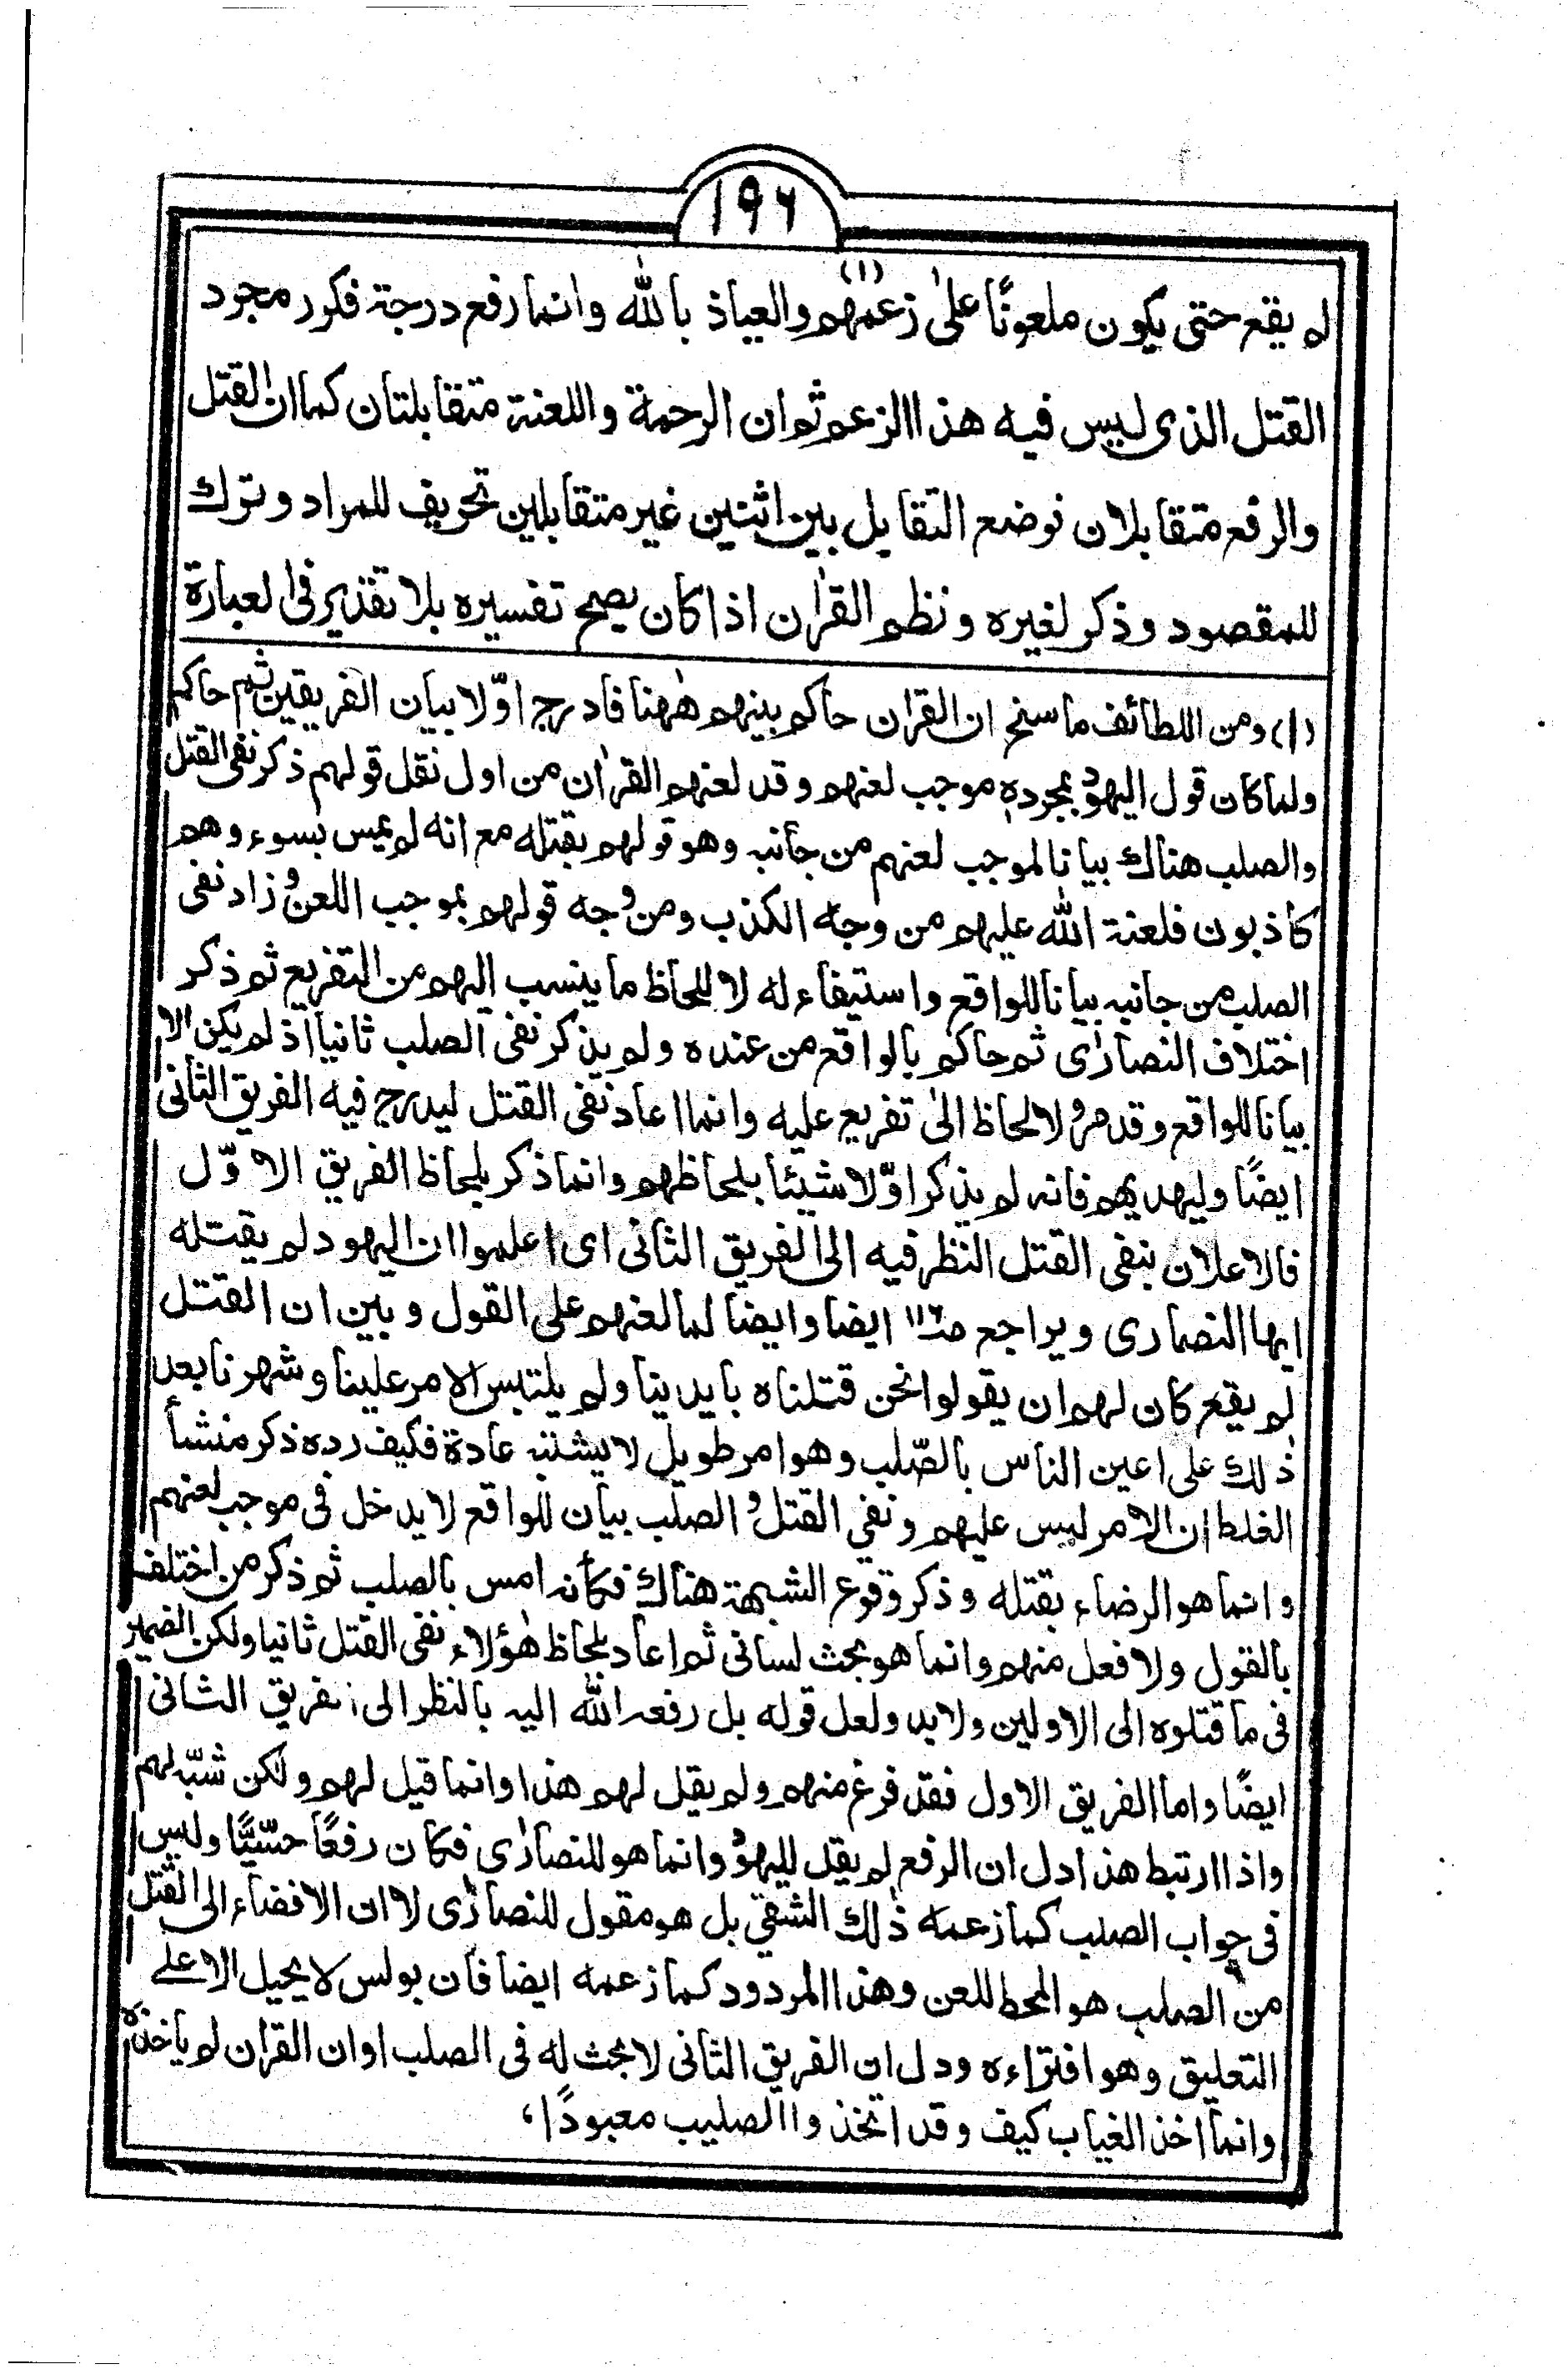 ١٩٦
لم يقع حتى يكون ملعونًا على زعمهم (١) والعياذ بالله وانما رفع درجة فكرر مجرد
القتل الذى ليس فيه هذا الزعم ثم ان الرحمة واللعنة متقابلتان كما ان القتل
والرفع متقابلان فوضع التقابل بين اثنين غير متقابلين تحريف للمراد وترك
للمقصود وذكر لغيره ونظم القراٰن اذا كان يصح تفسيره بلا تقدير فى العبارة
(١) ومن اللطائف ما سنح ان القراٰن حاكم بينهم هٰهنا فادرج اوّلا بيان الفريقين ثم حاكم
ولما كان قول اليهود بمجرده موجب لعنهم وقد لعنهم القراٰن من اول نقل قولهم ذكر نفى القتل
والصلب هناك بيانا لموجب لعنهم من جانبه وهو قولهم بقتله مع انه لم يمس بسوء وهم
كاذبون فلعنة الله عليهم من وجه الكذب ومن وجه قولهم بموجب اللعن وزاد نفى
الصلب من جانبه بيانا للواقع واستيفاء له لا للحاظ ما ينسب اليهم من التفريع ثم ذكر
اختلاف النصارٰى ثم حاكم بالواقع من عنده ولم يذكر نفى الصلب ثانيا اذ لم يكن الا
بيانا للواقع وقد مر ولا لحاظ الىٰ تفريع عليه وانما اعاد نفى القتل ليدرج فيه الفريق الثانى
ايضًا وليهديهم فانه لم يذكر اوّلا شيئا بلحاظهم وانما ذكر بلحاظ الفريق الاوّل
فالاعلان بنفى القتل النظر فيه الى الفريق الثانى اى اعلموا ان اليهود لم يقتله
ايها النصارى ويراجع ايضا وايضا لما لعنهم على القول وبين ان القتل
لم يقع كان لهم ان يقولوا نحن قتلناه بايدينا ولم يلتبس الامر علينا وشهرنا بعد
ذٰلك على اعين الناس بالصّلب وهو امر طويل لا يشتبه عادة فكيف رده ذكر منشأ
الغلط ان الامر لبس عليهم ونفى القتل والصلب بيان للواقع لا يدخل فى موجب لعنهم
وانما هو الرضاء بقتله وذكر وقوع الشبهة هناك فكأنه امس بالصلب ثم ذكر من اختلف
بالقول ولا فعل منهم وانما هو بحث لسانى ثم اعاد بلحاظ هٰؤلاء نفى القتل ثانيا ولكن الضمير
فى ما قتلوه الى الاولين ولا بد ولعل قوله بل رفعه الله اليه بالنظر الى الفريق الثانى
ايضًا واما الفريق الاول فقد فرغ منهم ولم يقل لهم هذا وانما قيل لهم ولكن شبّه لهم
واذا ارتبط هذا دل ان الرفع لم يقل لليهود وانما هو للنصارٰى فكان رفعًا حسّيًّا وليس
فى جواب الصلب كما زعمه ذٰلك الشقى بل هو مقول للنصارٰى لا ان الافضاء الى القتل
من الصلب هو المحط للعن وهذا المردود كما زعمه ايضا فان بولس لا يحيل الا على
التعليق وهو افتراءه ودل ان الفريق الثانى لا بحث له فى الصلب او ان القراٰن لم يأخذه
وانما اخذ الغياب كيف وقد اتخذوا الصليب معبودًا،